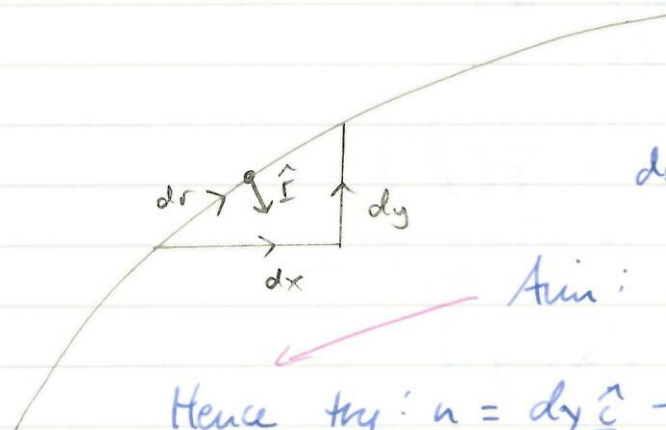 dr
Î
dy
dx
d
Aim :
Hence try : n = dy î -